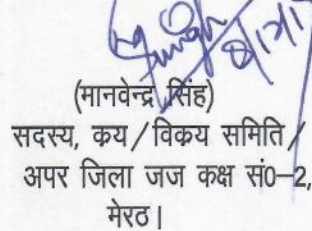 (मानवेन्द्र सिंह)
सदस्य, क्रय/विक्रय समिति/
अपर जिला जज कक्ष सं0-2,
मेरठ।